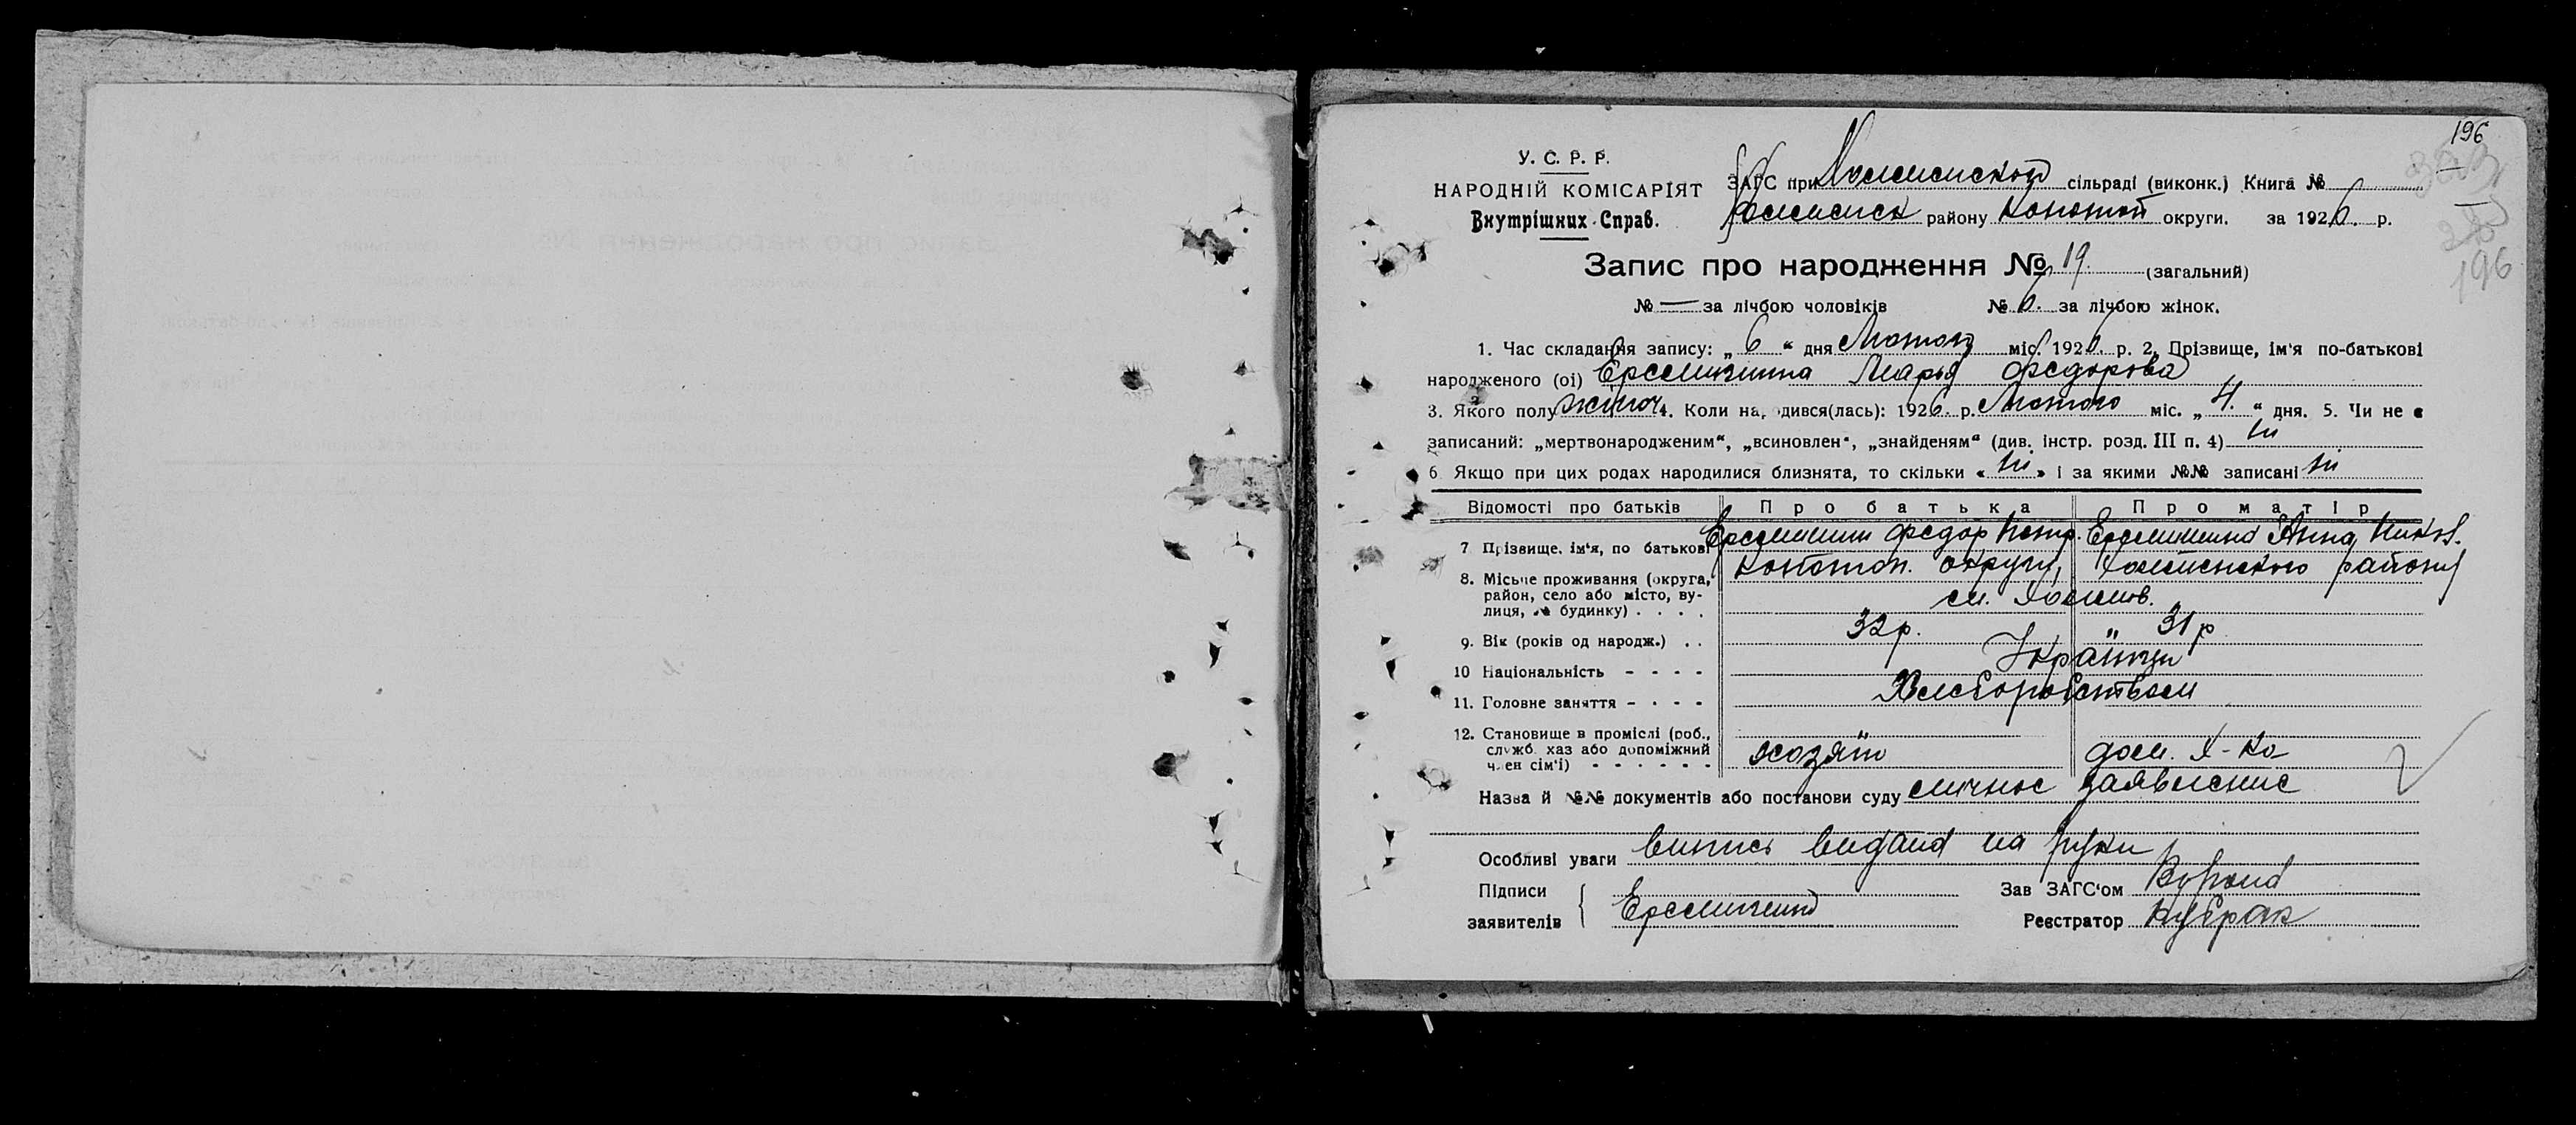 196
У. С. Р. Р.
НАРОДНІЙ КОМІСАРІЯТ
Внутрішних Справ.
ЗАГС при сільраді (виконк.) Книга №
району Конотоп округи. за 1926 р.
196
Запис про народження № 19. (загальний)
№ — за лічбою чоловіків № 6. за лічбою жінок.
1. Час складання запису: „ 6 “ дня Лютого міс. 1926. р. 2. Прізвище, ім'я по-батькові
народженого (ої) Марья Федорова
3. Якого полу жіноч 4. Коли народився(лась): 1926. р. Лютого міс. „ 4. “ дня. 5. Чи не є
записаний: „мертвонародженим“, „всиновлен“, „знайденям“ (див. інстр. розд. III п. 4) ні
6 Якщо при цих родах народилися близнята, то скільки « ні » і за якими №№ записані ні
Відомості про батьків Про батька Про матір
7 Прізвище, ім'я, по батькові Федор Петр. Анна Никол.
8. Місьце проживання (округа, район, село або місто, вулиця, № будинку) . . . . Конотоп. округи, района
9. Вік (років од народж.) . . 32 р. „ 31 р
10 Національність - - - - Українци
11. Головне заняття - - - - Хлеборобством
12. Становище в проміслі (роб., служб. хаз або допоміжний член сім'ї) - - - - - - хозяїн дом. х-ка
Назва й №№ документів або постанови суду личное заявление
Особливі уваги випись видана на руки
Підписи
заявителів
Зав ЗАГС'ом
Реєстратор Кубрак